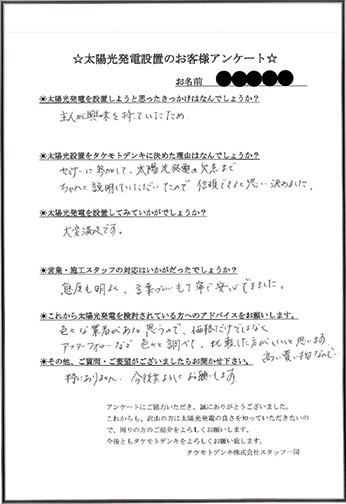 ☆太陽光発電設置のお客様アンケート☆
お名前
☀太陽光発電を設置しようと思ったきっかけはなんでしょうか？
主人が興味を持っていたため
☀太陽光設置をタケモトデンキに決めた理由はなんでしょうか？
セミナーに参加して、太陽光発電の欠点まで
ちゃんと説明していただいたので信頼できると思い決めました。
☀太陽光発電を設置してみていかがでしょうか？
大変満足です。
☀営業・施工スタッフの対応はいかがだったでしょうか？
態度も明るく、言葉づかいも丁寧で安心できました。
☀これから太陽光発電を検討されている方へのアドバイスをお願いします。
色々な業者があると思うので、価格だけではなく
アフターフォローなど色々と調べて、比較した方がいいと思います。
高い買い物なんで…
☀その他、ご質問・ご要望がございましたらお聞かせ下さい。
特にありません。今後共よろしくお願いします。
アンケートにご協力いただき、誠にありがとうございました。
これからも、沢山の方に太陽光発電の良さを知っていただきたいの
で、周りの方のご紹介をよろしくお願いします。
今後ともタケモトデンキをよろしくお願い致します。
タケモトデンキ株式会社スタッフ一同